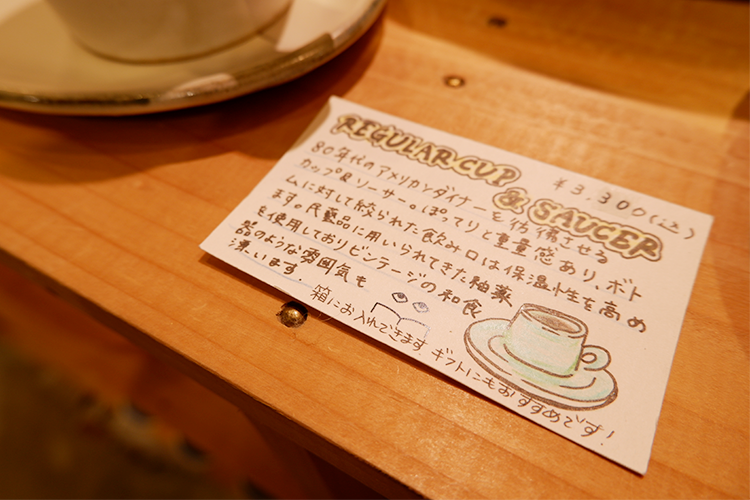 REGULAR CUP
& SAUCER
¥3,300(込)
80年代のアメリカンダイナーを彷彿させる
カップ&ソーサー。ぽってりと重量感あり、ボト
ムに対して絞られた飲み口は保温性を高め
ます。民藝品に用いられてきた釉薬
を使用しておりビンテージの和食
器のような雰囲気も
漂います。
箱にお入れできます ギフトにもおすすめです!